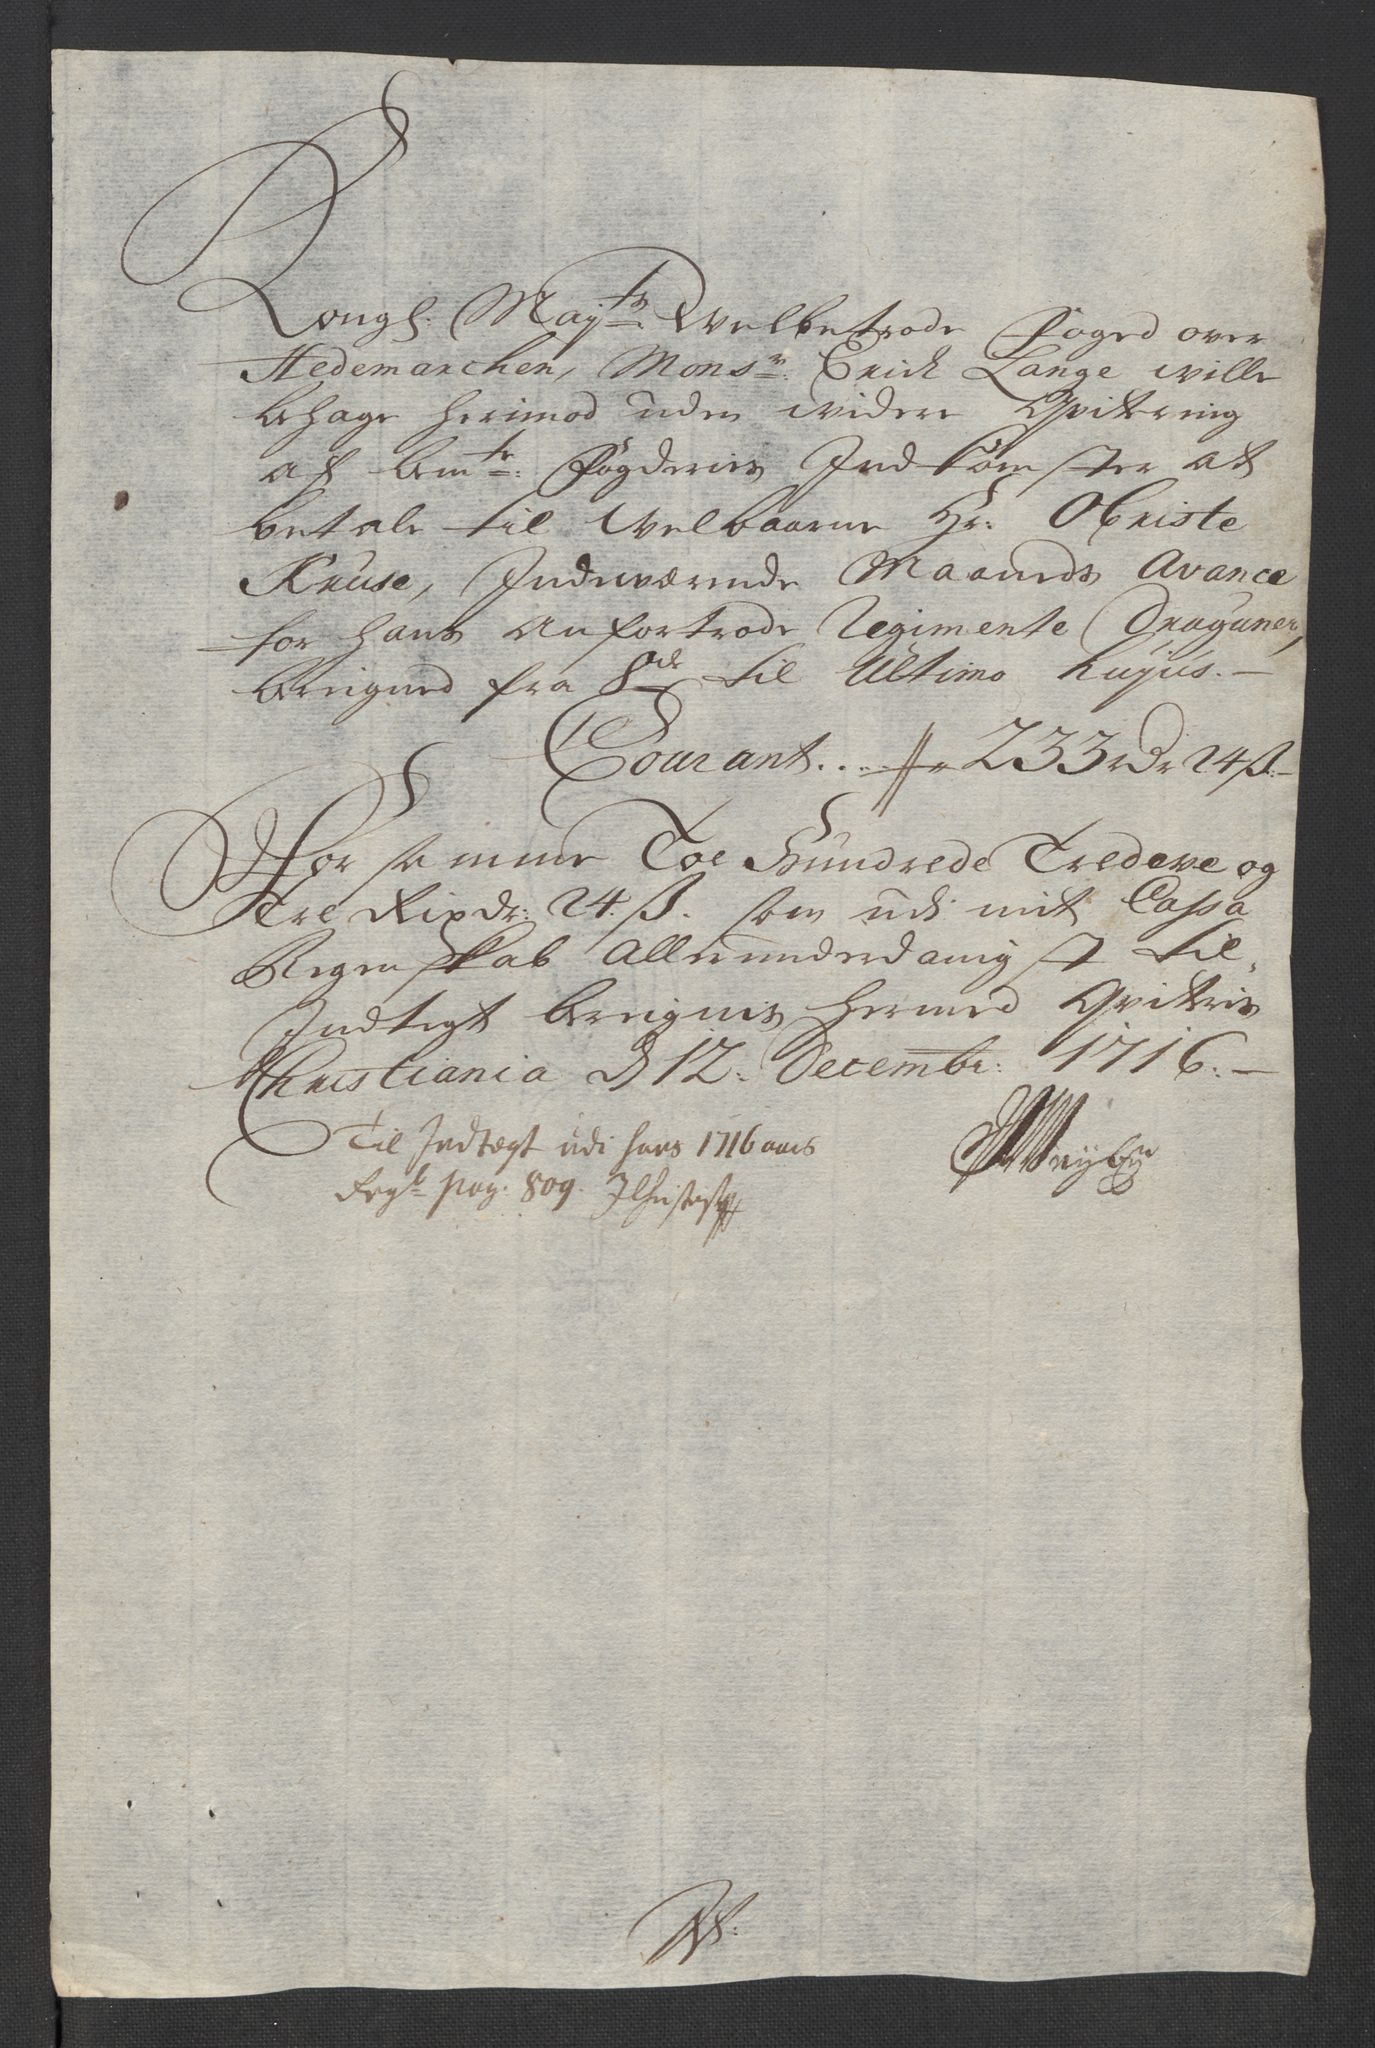 Kongl: May:ts Welbetrode Foged over
Hedemarchen, Mons:r Erich Lange wille
behage herimod uden widere Qvitering
af bem:te Fogderies Indkomster at
betale til Welbaarne Hr: Obriste
Kruse, Indeværende Maaneds Avance
for hans Anfortrode Regimente Draguner,
bereigned fra 8de til Ultimo hujus.-
Courant... 233 rdr 24 ß:-
For samme Toe Hundrede Tredeve og
Tre Rixdr: 24. ß. som udi mit Cassa
Regenskab Allerunderdanigst til
Indtegt bereignis hermed Qviteris
Christiania D 12. Decembr: 1716.-
Til Indtegt udi hans 1716 aars
Regb pag. 809.